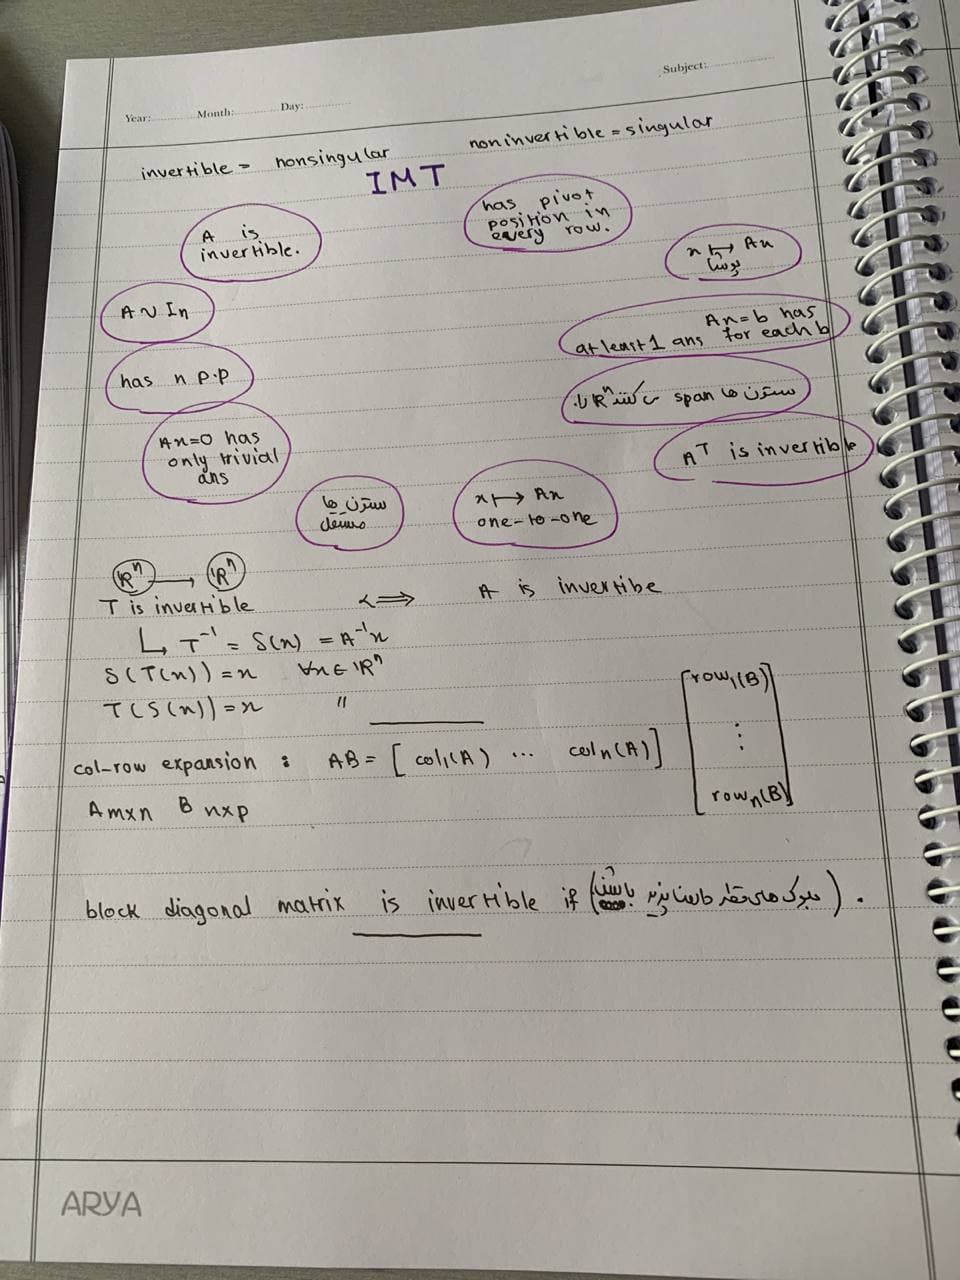 Year: Month: Day: Subject:
invertible = nonsingular noninvertible = singular
IMT
A is
invertible.
has pivot
position in
every row.
x ↦ Ax
پوشا
A ~ In
Ax=b has
at least 1 ans for each b
has n p.p
ستون ها span می کنند Rⁿ را.
Ax=0 has
only trivial
ans
Aᵀ is invertible
ستون ها
مستقل
x ↦ Ax
one-to-one
Rⁿ → Rⁿ
T is invertible ⟺ A is invertibe
↳ T⁻¹ = S(x) = A⁻¹x
S(T(x)) = x ∀x∈Rⁿ
T(S(x)) = x "
col-row expansion : AB = [ col₁(A) ... coln(A) ] [ row₁(B) ⋮ rown(B) ]
Amxn Bnxp
block diagonal matrix is invertible if (بلوک های قطر وارون پذیر باشند).
ARYA